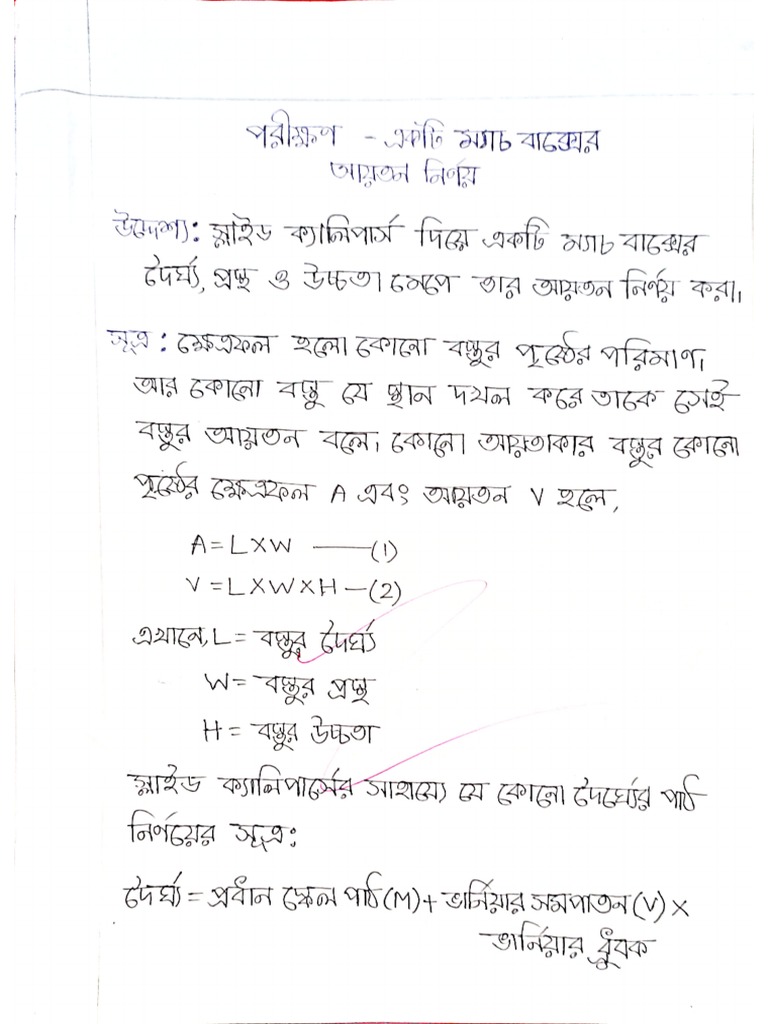 পরীক্ষণ - একটি ম্যাচ বাক্সের
আয়তন নির্ণয়
উদ্দেশ্য: স্লাইড ক্যালিপার্স দিয়ে একটি ম্যাচ বাক্সের
দৈর্ঘ্য, প্রস্থ ও উচ্চতা মেপে তার আয়তন নির্ণয় করা।
সূত্র: ক্ষেত্রফল হলো কোনো বস্তুর পৃষ্ঠের পরিমাণ।
আর কোনো বস্তু যে স্থান দখল করে তাকে সেই
বস্তুর আয়তন বলে। কোনো আয়তাকার বস্তুর কোনো
পৃষ্ঠের ক্ষেত্রফল A এবং আয়তন V হলে,
A = L×W —(1)
V = L×W×H —(2)
এখানে, L = বস্তুর দৈর্ঘ্য
W = বস্তুর প্রস্থ
H = বস্তুর উচ্চতা
স্লাইড ক্যালিপার্সের সাহায্যে যে কোনো দৈর্ঘ্যের পাঠ
নির্ণয়ের সূত্র:
দৈর্ঘ্য = প্রধান স্কেল পাঠ (M) + ভার্নিয়ার সমপাতন (V) ×
ভার্নিয়ার ধ্রুবক